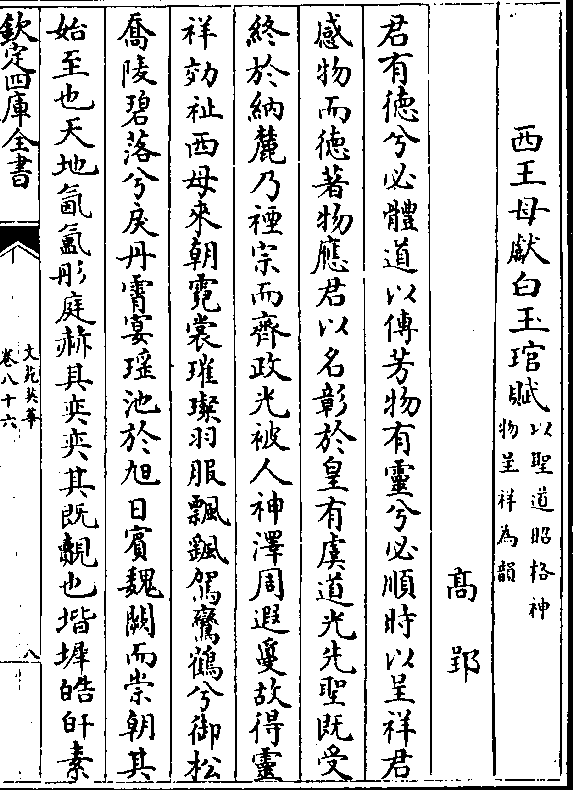 西王母獻白玉琯賦以聖道昭格神
物呈祥為韻
高郢
君有徳兮必體道以傳芳物有靈兮必順時以呈祥君
感物而徳著物應君以名彰於皇有虞道光先聖既受
終於納麓乃禋宗而齊政光被人神澤周遐夐故得靈
祥効祉西母來朝霓裳璀璨羽服飄颻駕鸞鶴兮御松
喬陵碧落兮戾丹霄宴瑶池於旭日賓魏闕而崇朝其
始至也天地氤氲彤庭赫其奕奕其既覿也堦墀皓皛素
欽定四庫全書
文苑英華
卷八十六
八